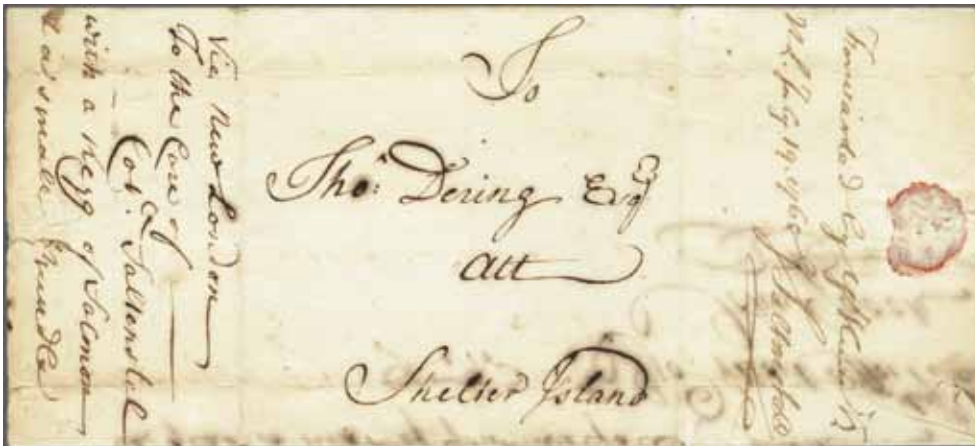 To
Tho.s Dering Esqr
Att
Shelter Island
Via New London
To the Care of
Col. G Saltonstal
with a Kegg of Salmon
& a small Bundle
Forwarded By
N L July 19 1760